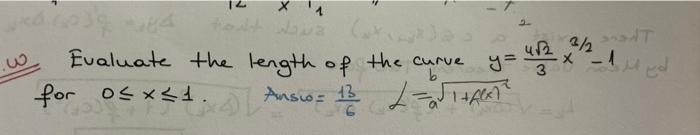 Evaluate the length of the curve y = 4√2/3 x^3/2 - 1
for 0 ≤ x ≤ 1. Answ = 13/6 L = a b √1+f(x)²